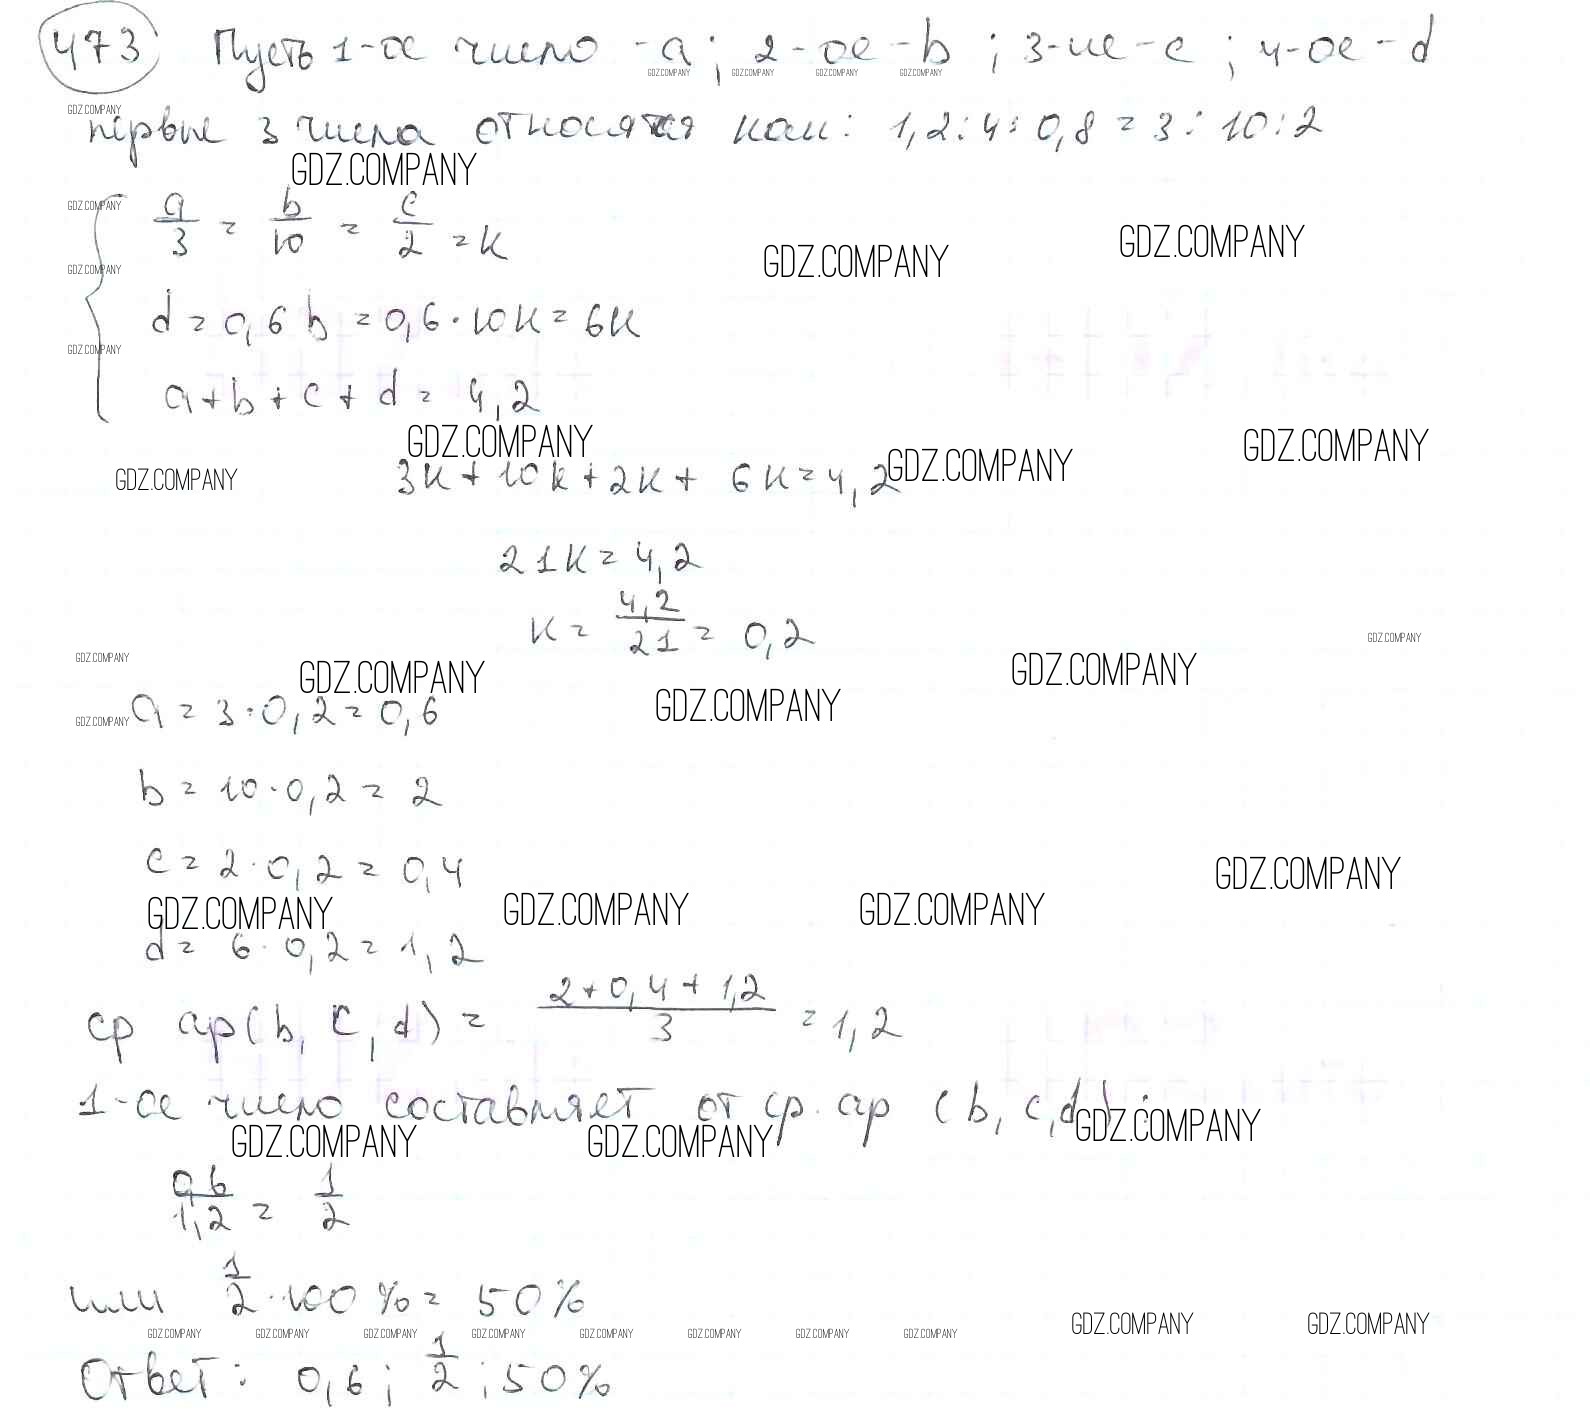 473 Пусть 1-ое число - a; 2-ое - b; 3-ие - c; 4-ое - d
GDZ.COMPANY GDZ.COMPANY GDZ.COMPANY GDZ.COMPANY
GDZ.COMPANY
первые 3 числа относятся как: 1,2:4:0,8 = 3:10:2
GDZ.COMPANY
GDZ.COMPANY
a/3 = b/10 = c/2 = k
GDZ.COMPANY GDZ.COMPANY
GDZ.COMPANY
d = 0,6 b = 0,6·10k = 6k
GDZ.COMPANY
a + b + c + d = 4,2
GDZ.COMPANY GDZ.COMPANY GDZ.COMPANY
GDZ.COMPANY
3k + 10k + 2k + 6k = 4,2
21k = 4,2
k = 4,2/21 = 0,2
GDZ.COMPANY
GDZ.COMPANY GDZ.COMPANY GDZ.COMPANY GDZ.COMPANY
GDZ.COMPANY
a = 3·0,2 = 0,6
b = 10·0,2 = 2
c = 2·0,2 = 0,4
GDZ.COMPANY
GDZ.COMPANY GDZ.COMPANY GDZ.COMPANY
d = 6·0,2 = 1,2
ср ар(b, c, d) = 2+0,4+1,2/3 = 1,2
1-ое число составляет от ср. ар (b, c, d):
GDZ.COMPANY GDZ.COMPANY GDZ.COMPANY
0,6/1,2 = 1/2
или 1/2·100% = 50%
GDZ.COMPANY GDZ.COMPANY GDZ.COMPANY GDZ.COMPANY GDZ.COMPANY GDZ.COMPANY GDZ.COMPANY GDZ.COMPANY GDZ.COMPANY GDZ.COMPANY
Ответ: 0,6; 1/2; 50%